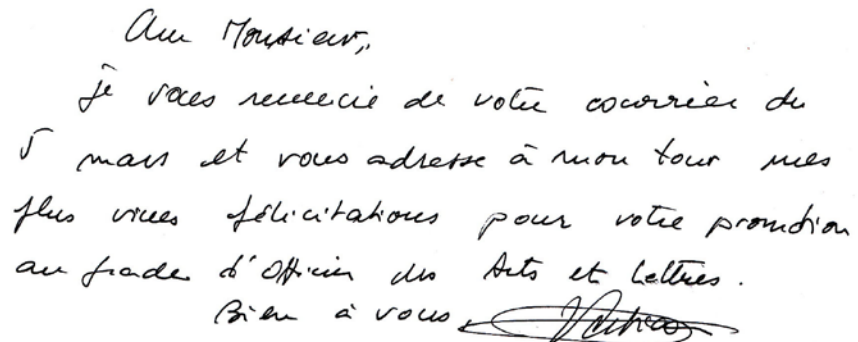 Cher Monsieur,
je vous remercie de votre courrier du
5 mars et vous adresse à mon tour mes
plus vives félicitations pour votre promotion
au grade d'Officier des Arts et Lettres.
Bien à vous,